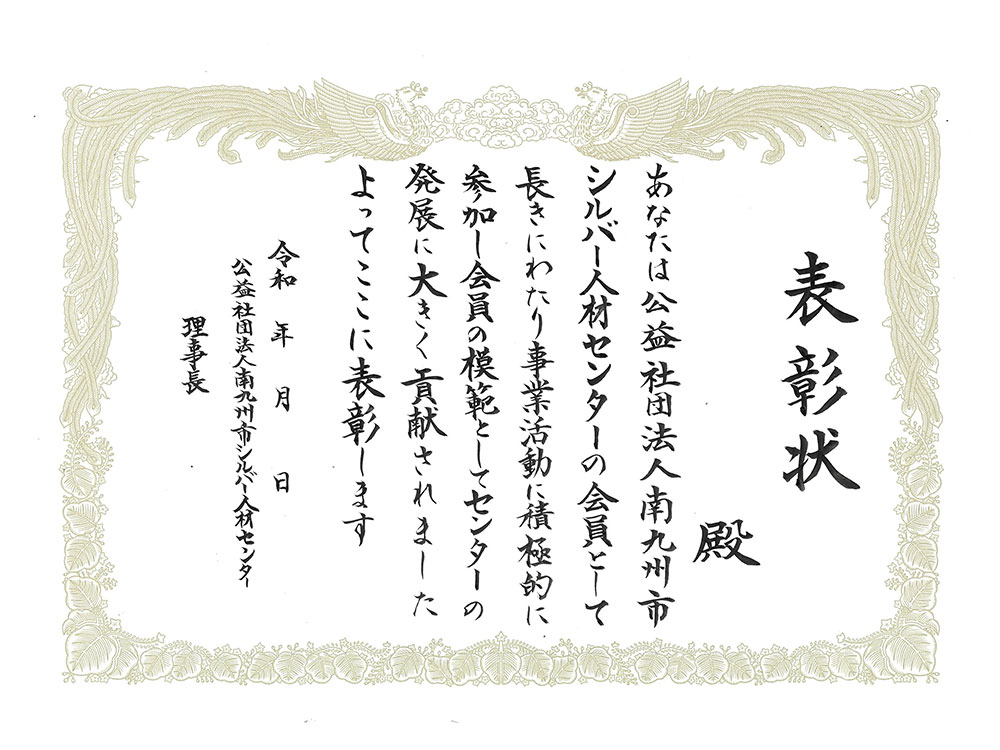 表彰状
殿
あなたは公益社団法人南九州市
シルバー人材センターの会員として
長きにわたり事業活動に積極的に
参加し会員の模範としてセンターの
発展に大きく貢献されました
よってここに表彰します
令和 年 月 日
公益社団法人南九州市シルバー人材センター
理事長